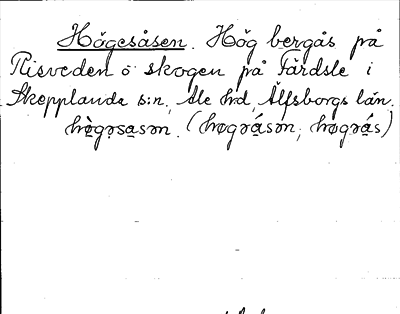 Högesåsen. Hög bergås på
Risveden ö skogen på Färdsle i
Skepplanda s:n, Ale hd, Älfsborgs län.
hø̀gəsa̱sən. (høgrásən, høgrás)